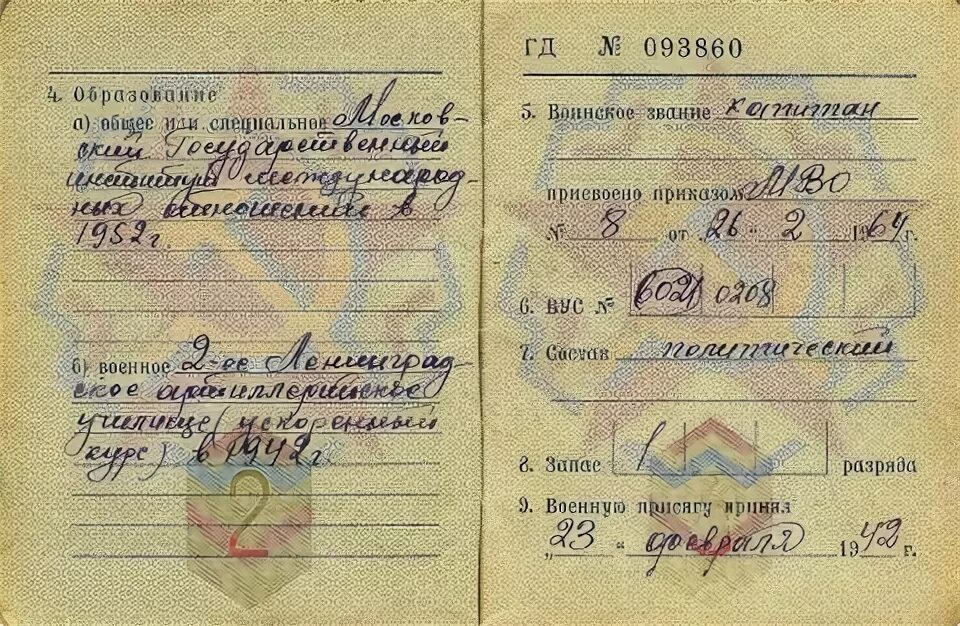 4. Образование
а) общее или специальное Москов-
ский Государственный
институт международ-
ных отношений в
1952 г.
б) военное 2-ое Ленинград-
ское артиллерийское
училище (ускоренный
курс) в 1942 г.
2
ГД № 093860
5. Воинское звание капитан
присвоено приказом МВО
№ 8 от „26“ 2 1964 г.
6. ВУС № 6021 0208
7. Состав политический
8. Запас 1 разряда
9. Военную присягу принял
„23“ февраля 1942 г.